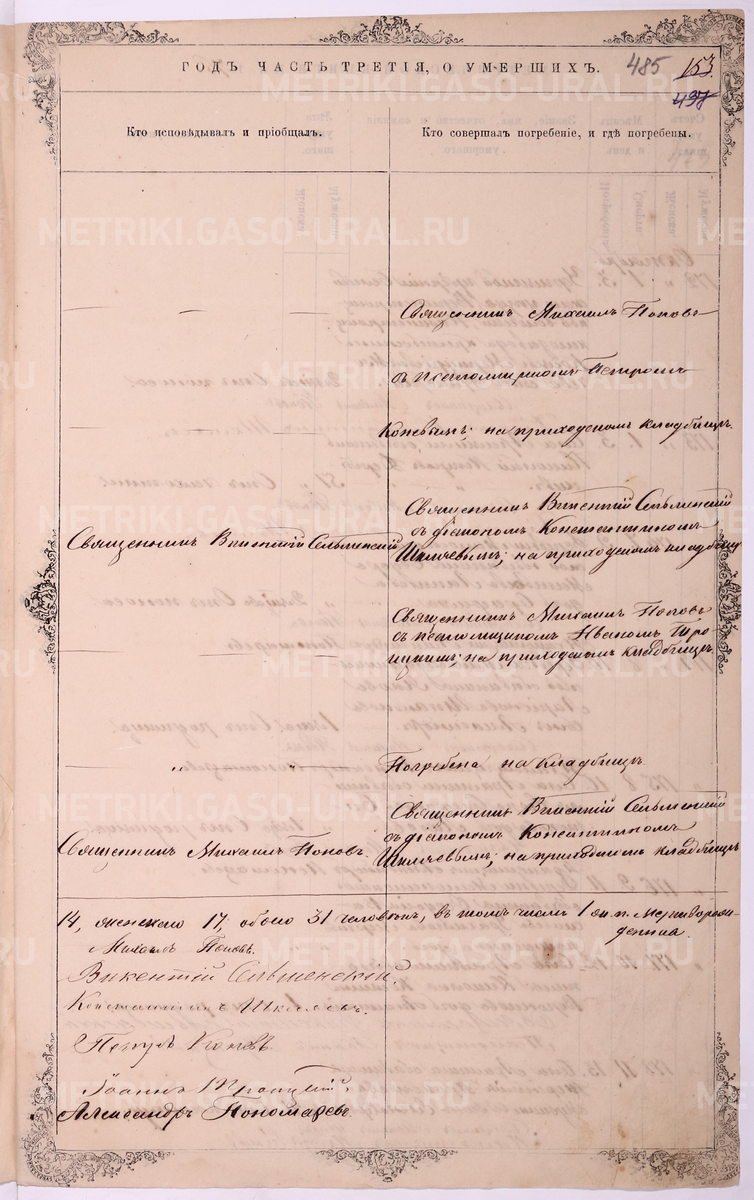 ГОДЪ ЧАСТЬ ТРЕТІЯ, О УМЕРШИХЪ.
485
153
497
Кто исповѣдывалъ и пріобщалъ.
Кто совершалъ погребеніе, и гдѣ погребены.
METRIKI.GASO-URAL.RU
Священникъ Михаилъ Поповъ
съ псаломщикомъ Петромъ
Коневымъ; на приходскомъ кладбищѣ.
Священникъ Викентій Сельменскій
Священникъ Викентій Сельменскій
съ діакономъ Константиномъ
Шкляевымъ; на приходскомъ кладбищѣ
Священникъ Михаилъ Поповъ
съ псаломщикомъ Иваномъ Тро
ицкимъ; на приходскомъ кладбищѣ.
Погребена на кладбищѣ.
Священникъ Михаилъ Поповъ.
Священникъ Викентій Сельменскій
съ діакономъ Константиномъ
Шкляевымъ; на приходскомъ кладбищѣ
14, женскаго 17, обоего 31 человѣкъ, въ томъ числѣ 1 ж. п. мертворож-
денная.
Михаилъ Поповъ.
Викентій Сельменскій.
Константинъ Шкляевъ.
Петръ Коневъ.
Іоаннъ Троицкій.
Александръ Пономаревъ